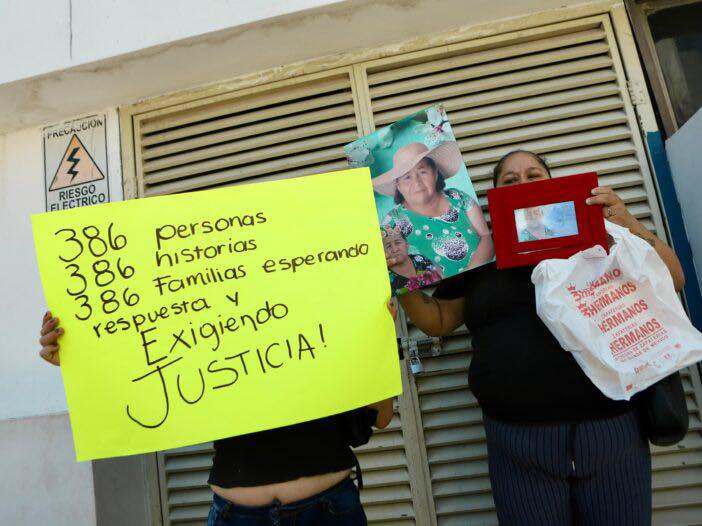 PRECAUCIÓN
RIESGO
ELÉCTRICO
386 personas
386 historias
386 Familias esperando
respuesta y
Exigiendo
JUSTICIA!
3HERMANOS
3HERMANOS
HERMANOS
HERMANOS